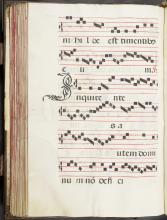 nihil de est timentibus
e u m. V
Inquirente
s a
utem domi
nu m nō defi ci